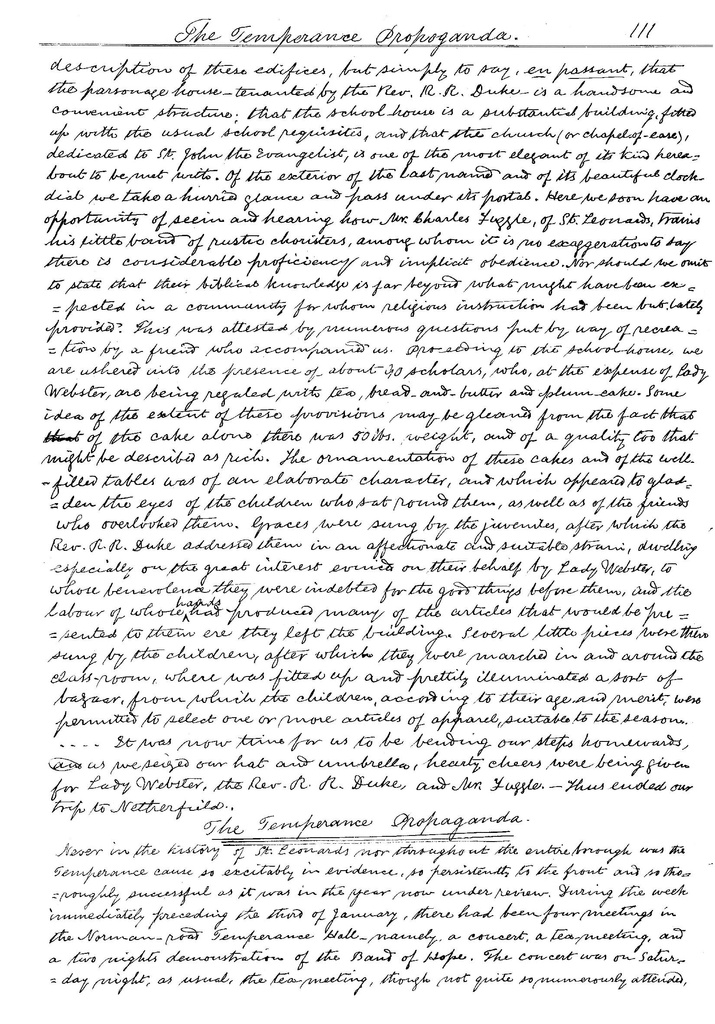 The Temperance Propoganda. 111
description of these edifices, but simply to say, en passant, that
the parsonage house—tenanted by the Rev. R. R. Duke—is a handsome and
convenient structure; that the school-house is a substantial building, fitted
up with the usual school requisites, and that the church (or chapel-of-ease),
dedicated to St. John the Evangelist, is one of the most elegant of its kind herea=
bout to be met with. Of the exterior of the last named and of its beautiful clock-
dial we take a hurried glance and pass under its portal. Here we soon have an
opportunity of seein and hearing how Mr. Charles Fuggle, of St. Leonards, trains
his little band of rustic choristers, among whom it is no exaggeration to say
there is considerable proficiency and implicit obedience. Nor should we omit
to state that their biblical knowledge is far beyond what might have been ex=
=pected in a community for whom religious instruction had been but lately
provided. This was attested by numerous questions put by way of recrea=
=tion by a friend who accompanied us. Proceeding to the school-house, we
are ushered into the presence of about 90 scholars, who, at the expense of Lady
Webster, are being regaled with tea, bread-and-butter and plum-cake. Some
idea of the extent of these provisions may be gleaned from the fact that
that of the cake alone there was 50 lbs. weight, and of a quality too that
might be described as rich. The ornamentation of these cakes and of the well-
-filled tables was of an elaborate character, and which appeared to glad-
=den the eyes of the children who sat round them, as well as of the friends
who overlooked them. Graces were sung by the juveniles, after which the
Rev. R. R. Duke addressed them in an affectionate and suitable strain, dwelling
especially on the great interest evinced on their behalf by Lady Webster, to
whose benevolence they were indebted for the good things before them, and the
labour of whose hands had produced many of the articles that would be pre=
=sented to them ere they left the building. Several little pieces were then
sung by the children, after which they were marched in and around the
class-room, where was fitted up and prettily illuminated a sort of
bazaar, from which the children, according to their age and merit, were
permitted to select one or more articles of apparel, suitable to the season.
.... It was now time for us to be bending our steps homewards,
and as we seized our hat and umbrella, hearty cheers were being given
for Lady Webster, the Rev. R. R. Duke, and Mr. Fuggle. — Thus ended our
trip to Netherfield.
The Temperance Propaganda.
Never in the history of St. Leonards nor throughout the entire borough was the
Temperance cause so excitably in evidence, so persistently to the front and so tho=
=roughly successful as it was in the year now under review. During the week
immediately preceding the third of January, there had been four meetings in
the Norman-road Temperance Hall—namely, a concert, a tea-meeting, and
a two nights demonstration of the Band of Hope. The concert was on Satur-
=day night, as usual, the tea-meeting, though not quite so numerously attended,